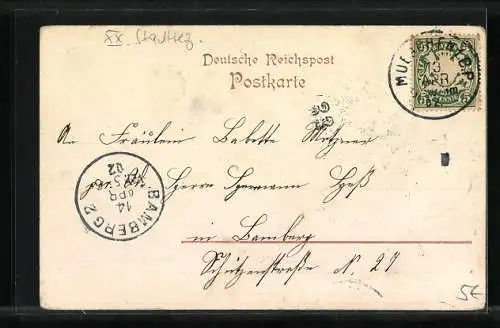 XX. Stadtteg.
Deutsche Reichspost
Postkarte
MUENCHEN B.P.
13
APR
02
An Fräulein Babette Metzner
per. Ad. Herrn Hermann Heß
in Bamberg
Schützenstraße N. 27
BAMBERG 2
14
APR
02
5€